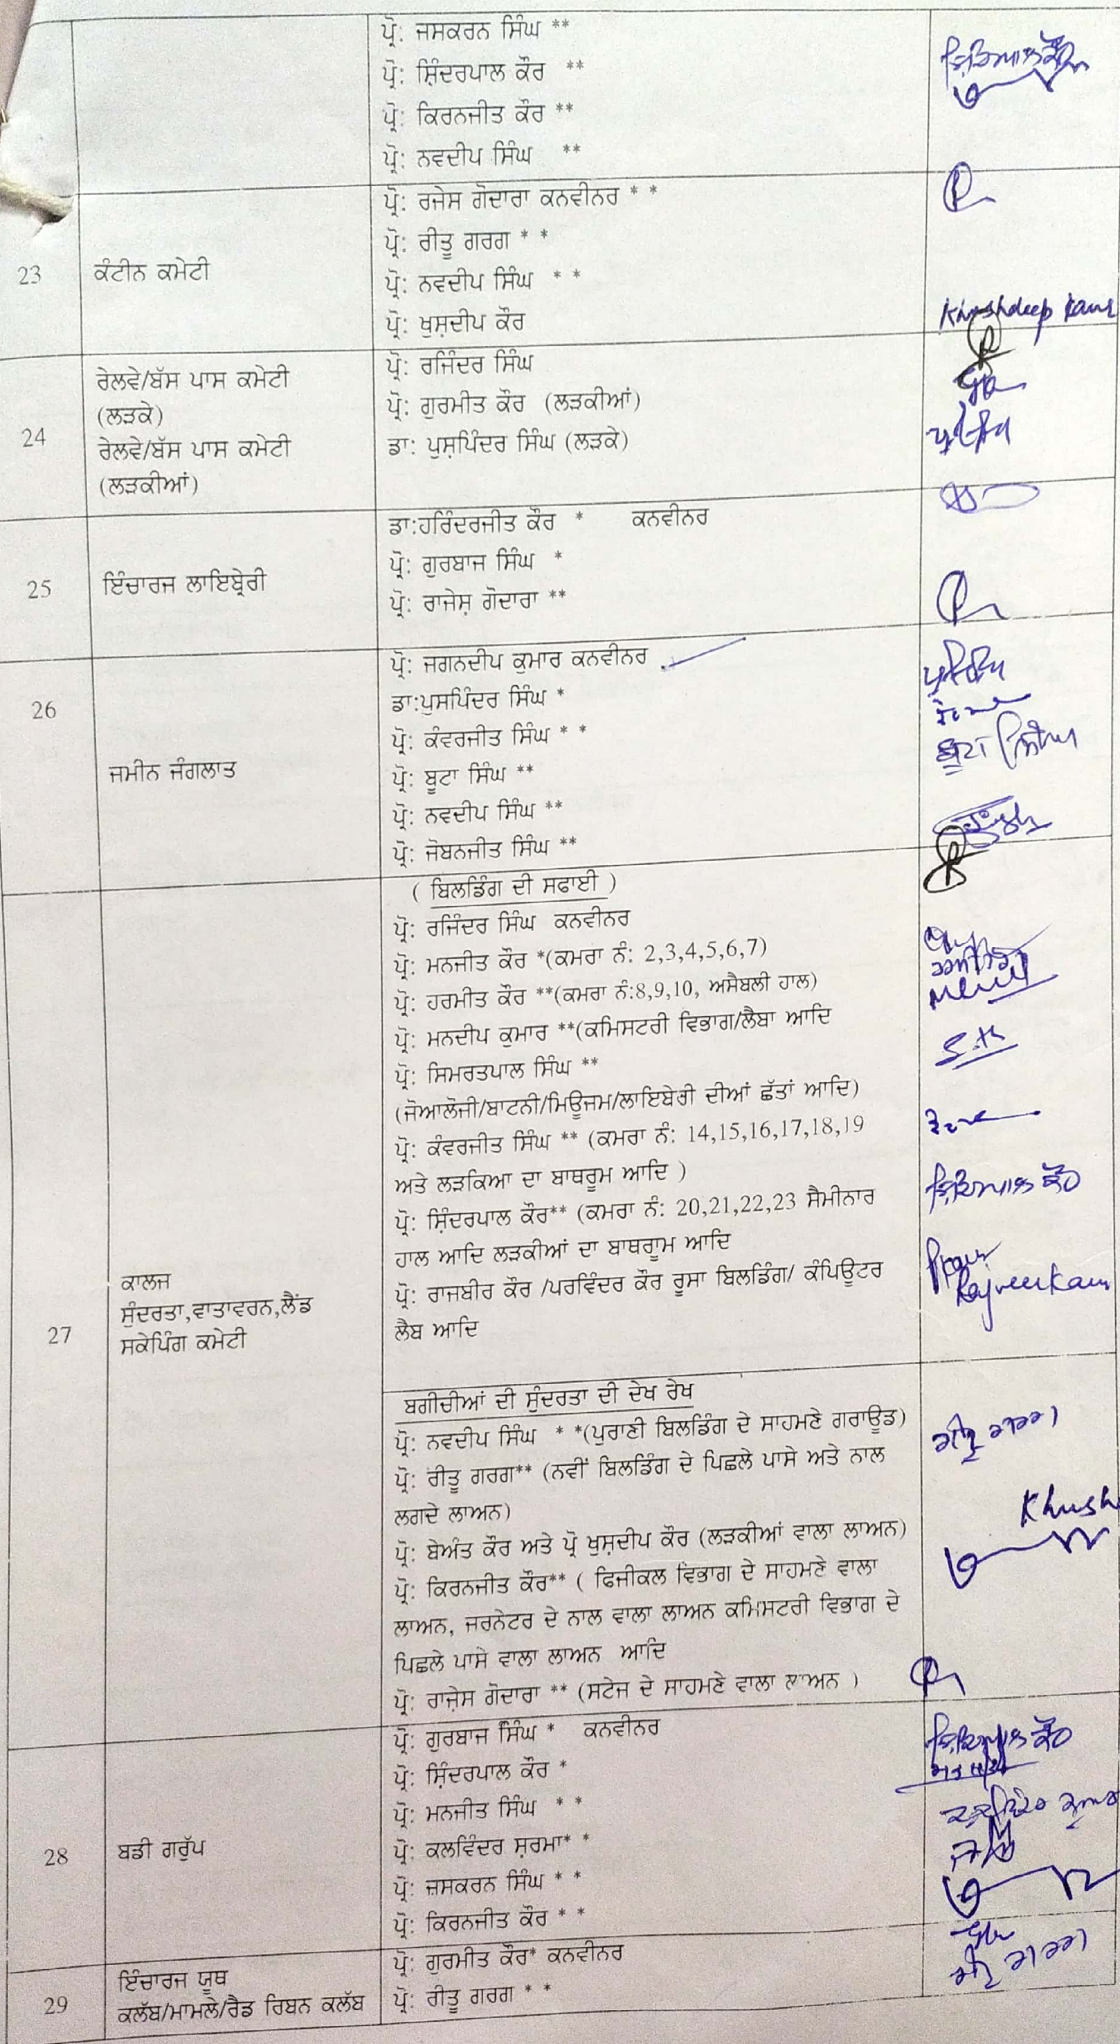 ਪ੍ਰੋ: ਜਸਕਰਨ ਸਿੰਘ **
ਪ੍ਰੋ: ਸ਼ਿੰਦਰਪਾਲ ਕੌਰ **
ਪ੍ਰੋ: ਕਿਰਨਜੀਤ ਕੌਰ **
ਪ੍ਰੋ: ਨਵਦੀਪ ਸਿੰਘ **
23
ਕੰਟੀਨ ਕਮੇਟੀ
ਪ੍ਰੋ: ਰਜੇਸ ਗੋਦਾਰਾ ਕਨਵੀਨਰ * *
ਪ੍ਰੋ: ਰੀਤੂ ਗਰਗ * *
ਪ੍ਰੋ: ਨਵਦੀਪ ਸਿੰਘ * *
ਪ੍ਰੋ: ਖੁਸ਼ਦੀਪ ਕੌਰ
Khushdeep Kaur
24
ਰੇਲਵੇ/ਬੱਸ ਪਾਸ ਕਮੇਟੀ
(ਲੜਕੇ)
ਰੇਲਵੇ/ਬੱਸ ਪਾਸ ਕਮੇਟੀ
(ਲੜਕੀਆਂ)
ਪ੍ਰੋ: ਰਜਿੰਦਰ ਸਿੰਘ
ਪ੍ਰੋ: ਗੁਰਮੀਤ ਕੌਰ (ਲੜਕੀਆਂ)
ਡਾ: ਪੁਸ਼ਪਿੰਦਰ ਸਿੰਘ (ਲੜਕੇ)
25
ਇੰਚਾਰਜ ਲਾਇਬ੍ਰੇਰੀ
ਡਾ:ਹਰਿੰਦਰਜੀਤ ਕੌਰ * ਕਨਵੀਨਰ
ਪ੍ਰੋ: ਗੁਰਬਾਜ ਸਿੰਘ *
ਪ੍ਰੋ: ਰਾਜੇਸ਼ ਗੋਦਾਰਾ **
26
ਜਮੀਨ ਜੰਗਲਾਤ
ਪ੍ਰੋ: ਜਗਨਦੀਪ ਕੁਮਾਰ ਕਨਵੀਨਰ
ਡਾ:ਪੁਸਪਿੰਦਰ ਸਿੰਘ *
ਪ੍ਰੋ: ਕੰਵਰਜੀਤ ਸਿੰਘ * *
ਪ੍ਰੋ: ਬੂਟਾ ਸਿੰਘ **
ਪ੍ਰੋ: ਨਵਦੀਪ ਸਿੰਘ **
ਪ੍ਰੋ: ਜੋਬਨਜੀਤ ਸਿੰਘ **
ਬੂਟਾ ਸਿੰਘ
27
ਕਾਲਜ
ਸੁੰਦਰਤਾ,ਵਾਤਾਵਰਨ,ਲੈਂਡ
ਸਕੇਪਿੰਗ ਕਮੇਟੀ
( ਬਿਲਡਿੰਗ ਦੀ ਸਫਾਈ )
ਪ੍ਰੋ: ਰਜਿੰਦਰ ਸਿੰਘ ਕਨਵੀਨਰ
ਪ੍ਰੋ: ਮਨਜੀਤ ਕੌਰ *(ਕਮਰਾ ਨੰ: 2,3,4,5,6,7)
ਪ੍ਰੋ: ਹਰਮੀਤ ਕੌਰ **(ਕਮਰਾ ਨੰ:8,9,10, ਅਸੈਬਲੀ ਹਾਲ)
ਪ੍ਰੋ: ਮਨਦੀਪ ਕੁਮਾਰ **(ਕਮਿਸਟਰੀ ਵਿਭਾਗ/ਲੈਬਾ ਆਦਿ
ਪ੍ਰੋ: ਸਿਮਰਤਪਾਲ ਸਿੰਘ **
(ਜੋਆਲੋਜੀ/ਬਾਟਨੀ/ਮਿਊਜਮ/ਲਾਇਬੇਰੀ ਦੀਆਂ ਛੱਤਾਂ ਆਦਿ)
ਪ੍ਰੋ: ਕੰਵਰਜੀਤ ਸਿੰਘ ** (ਕਮਰਾ ਨੰ: 14,15,16,17,18,19
ਅਤੇ ਲੜਕਿਆ ਦਾ ਬਾਥਰੂਮ ਆਦਿ )
ਪ੍ਰੋ: ਸ਼ਿੰਦਰਪਾਲ ਕੌਰ** (ਕਮਰਾ ਨੰ: 20,21,22,23 ਸੈਮੀਨਾਰ
ਹਾਲ ਆਦਿ ਲੜਕੀਆਂ ਦਾ ਬਾਥਰੂਮ ਆਦਿ
ਪ੍ਰੋ: ਰਾਜਬੀਰ ਕੌਰ /ਪਰਵਿੰਦਰ ਕੌਰ ਰੂਸਾ ਬਿਲਡਿੰਗ/ ਕੰਪਿਊਟਰ
ਲੈਬ ਆਦਿ
Rajveer Kaur
ਬਗੀਚੀਆਂ ਦੀ ਸੁੰਦਰਤਾ ਦੀ ਦੇਖ ਰੇਖ
ਪ੍ਰੋ: ਨਵਦੀਪ ਸਿੰਘ * *(ਪੁਰਾਣੀ ਬਿਲਡਿੰਗ ਦੇ ਸਾਹਮਣੇ ਗਰਾਊਡ)
ਪ੍ਰੋ: ਰੀਤੂ ਗਰਗ** (ਨਵੀਂ ਬਿਲਡਿੰਗ ਦੇ ਪਿਛਲੇ ਪਾਸੇ ਅਤੇ ਨਾਲ
ਲਗਦੇ ਲਾਅਨ)
ਪ੍ਰੋ: ਬੇਅੰਤ ਕੌਰ ਅਤੇ ਪ੍ਰੋ ਖੁਸ਼ਦੀਪ ਕੌਰ (ਲੜਕੀਆਂ ਵਾਲਾ ਲਾਅਨ)
ਪ੍ਰੋ: ਕਿਰਨਜੀਤ ਕੌਰ** ( ਫਿਜੀਕਲ ਵਿਭਾਗ ਦੇ ਸਾਹਮਣੇ ਵਾਲਾ
ਲਾਅਨ, ਜਰਨੇਟਰ ਦੇ ਨਾਲ ਵਾਲਾ ਲਾਅਨ ਕਮਿਸਟਰੀ ਵਿਭਾਗ ਦੇ
ਪਿਛਲੇ ਪਾਸੇ ਵਾਲਾ ਲਾਅਨ ਆਦਿ
ਪ੍ਰੋ: ਰਾਜੇਸ਼ ਗੋਦਾਰਾ ** (ਸਟੇਜ ਦੇ ਸਾਹਮਣੇ ਵਾਲਾ ਲਾਅਨ )
ਰੀਤੂ ਗਰਗ
Khush
28
ਬਡੀ ਗਰੁੱਪ
ਪ੍ਰੋ: ਗੁਰਬਾਜ ਸਿੰਘ * ਕਨਵੀਨਰ
ਪ੍ਰੋ: ਸ਼ਿੰਦਰਪਾਲ ਕੌਰ *
ਪ੍ਰੋ: ਮਨਜੀਤ ਸਿੰਘ * *
ਪ੍ਰੋ: ਕਲਵਿੰਦਰ ਸ਼ਰਮਾ* *
ਪ੍ਰੋ: ਜ਼ਸਕਰਨ ਸਿੰਘ * *
ਪ੍ਰੋ: ਕਿਰਨਜੀਤ ਕੌਰ * *
29
ਇੰਚਾਰਜ ਯੂਥ
ਕਲੱਬ/ਮਾਮਲੇ/ਰੈਡ ਰਿਬਨ ਕਲੱਬ
ਪ੍ਰੋ: ਗੁਰਮੀਤ ਕੌਰ* ਕਨਵੀਨਰ
ਪ੍ਰੋ: ਰੀਤੂ ਗਰਗ * *
ਰੀਤੂ ਗਰਗ